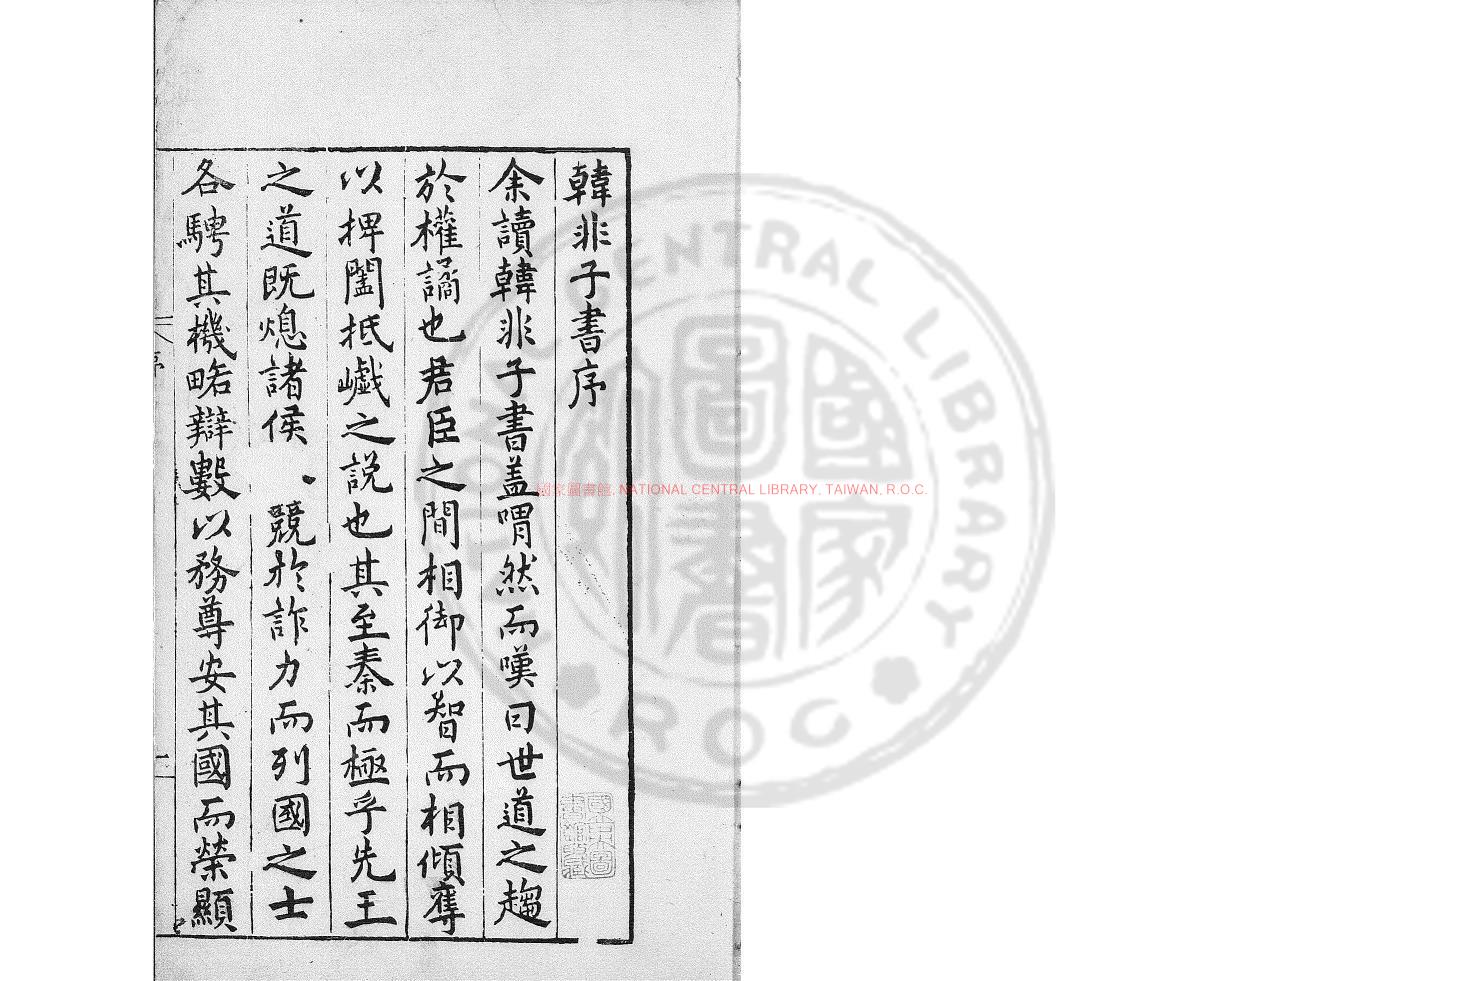 韓非子書序
余讀韓非子書盖喟然而嘆曰世道之趨
於權譎也君臣之間相御以智而相傾奪
以捭闔抵巇之説也其至秦而極乎先王
之道既熄諸侯競於詐力而列國之士
各騁其機略辯數以務尊安其國而榮顯
序
二
國家圖書館, NATIONAL CENTRAL LIBRARY, TAIWAN, R.O.C.
NATIONAL CENTRAL LIBRARY
ROC
國家圖書